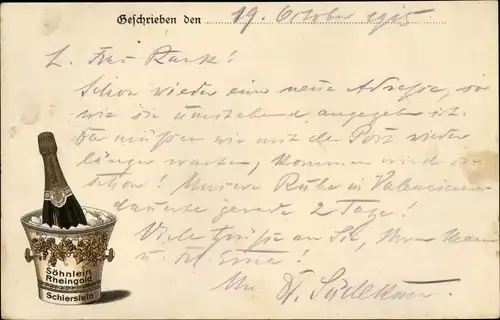 Geschrieben den 19. October 1915
L. Frau
Schon wieder eine neue Adresse, so
wie sie umstehend angegeben ist.
Da müssen wir mit der Post wieder
länger warten, kommen wird sie
schon! Unsere Ruhe in Valencien
dauerte gerade 2 Tage!
Viele Grüsse an Sie, Ihren Mann
u. Frl. Erna!
Ihr Dr. Südekum.
Söhnlein
Rheingold
Schierstein